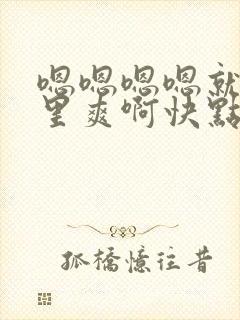 嗯嗯嗯嗯就
里爽啊快點
孤橋憶往昔